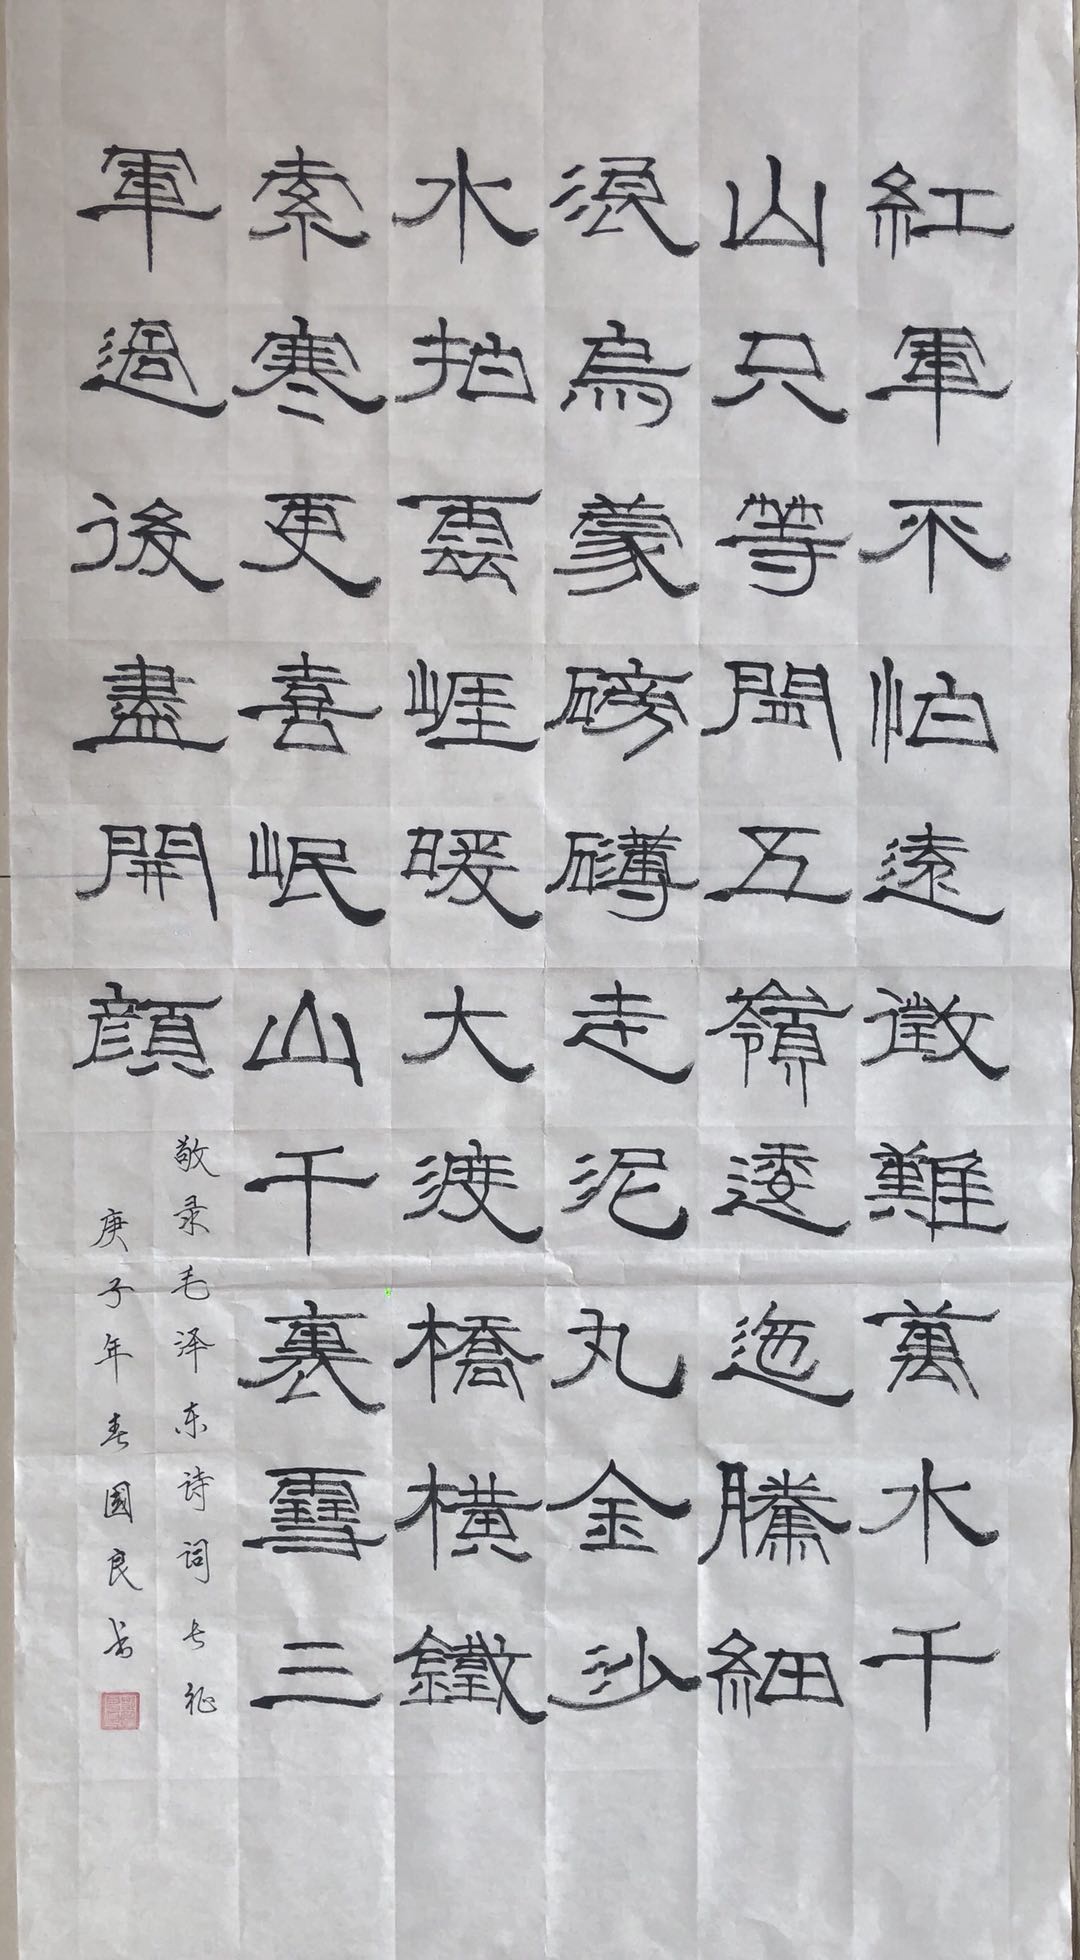 紅軍不怕遠徵難萬水千
山只等閒五嶺逶迤騰細
浪烏蒙磅礴走泥丸金沙
水拍雲崖暖大渡橋橫鐵
索寒更喜岷山千裏雪三
軍過後盡開顔
敬录毛泽东诗词长征
庚子年春國良书